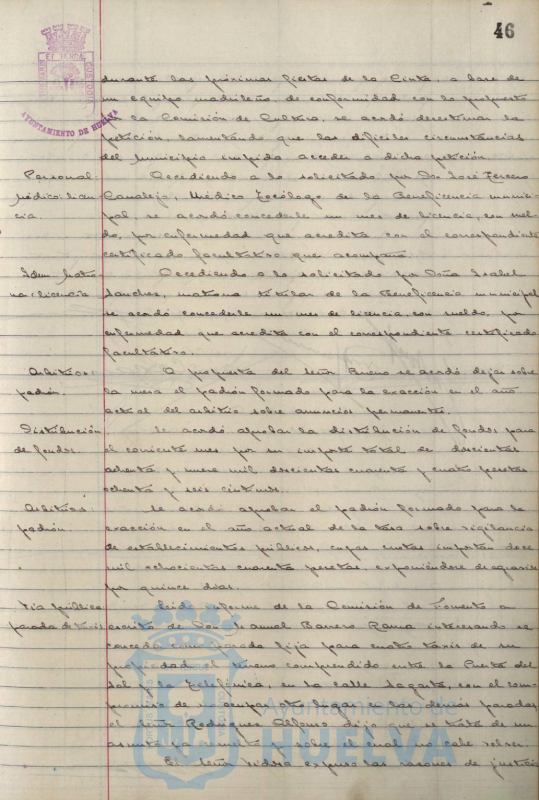 46
AYUNTAMIENTO DE HUELVA
durante las próximas fiestas de la Cinta, a base de
un equipo madrileño, de conformidad con lo propuesto
por la Comisión de Cultura, se acordó desestimar la
petición, lamentando que las difíciles circunstancias
del municipio impida acceder a dicha petición.
Personal
médico: licen
cia.
Accediendo a lo solicitado por Don José Terrero
Canalejo, Médico Tocólogo de la Beneficencia munici
pal, se acordó concederle un mes de licencia, con suel
do, por enfermedad que acredita con el correspondiente
certificado facultativo que acompaña.
Idem matro
na: licencia
Accediendo a lo solicitado por Doña Isabel
Sanchez, matrona titular de la Beneficencia municipal
se acordó concederle un mes de licencia, con sueldo, por
enfermedad que acredita con el correspondiente certificado
facultativo.
Arbitrios:
padrón.
A propuesta del señor Bueno se acordó dejar sobre
la mesa el padrón formado para la exacción en el año
actual del arbitrio sobre anuncios permanentes.
Distribución
de fondos.
Se acordó aprobar la distribución de fondos para
el corriente mes por un importe total de doscientas
ochenta y nueve mil doscientas cuarenta y cuatro pesetas
ochenta y seis céntimos.
Arbitrios:
padrón.
Se acordó aprobar el padrón formado para la
exacción en el año actual de la tasa sobre vigilancia
de establecimientos públicos, cuyas cuotas importan doce
mil ochocientas cuarenta pesetas, exponiéndose
por quince días.
Via pública
parada de taxis
Leido informe de la Comisión de Fomento a
escrito de Don Manuel Barrero Rama interesando se
conceda como parada fija para cuatro taxis de su
propiedad el terreno comprendido entre la Puerta del
Sol y Telefónica, en la calle Sagasta, con el com-
promiso de ocupar otro lugar en las demás paradas
el señor Rodriguez Alfonso dijo que se trata de un
asunto ya resuelto y sobre el cual no cabe volver.
El señor expuso las razones de justicia
Ayuntamiento de
HUELVA